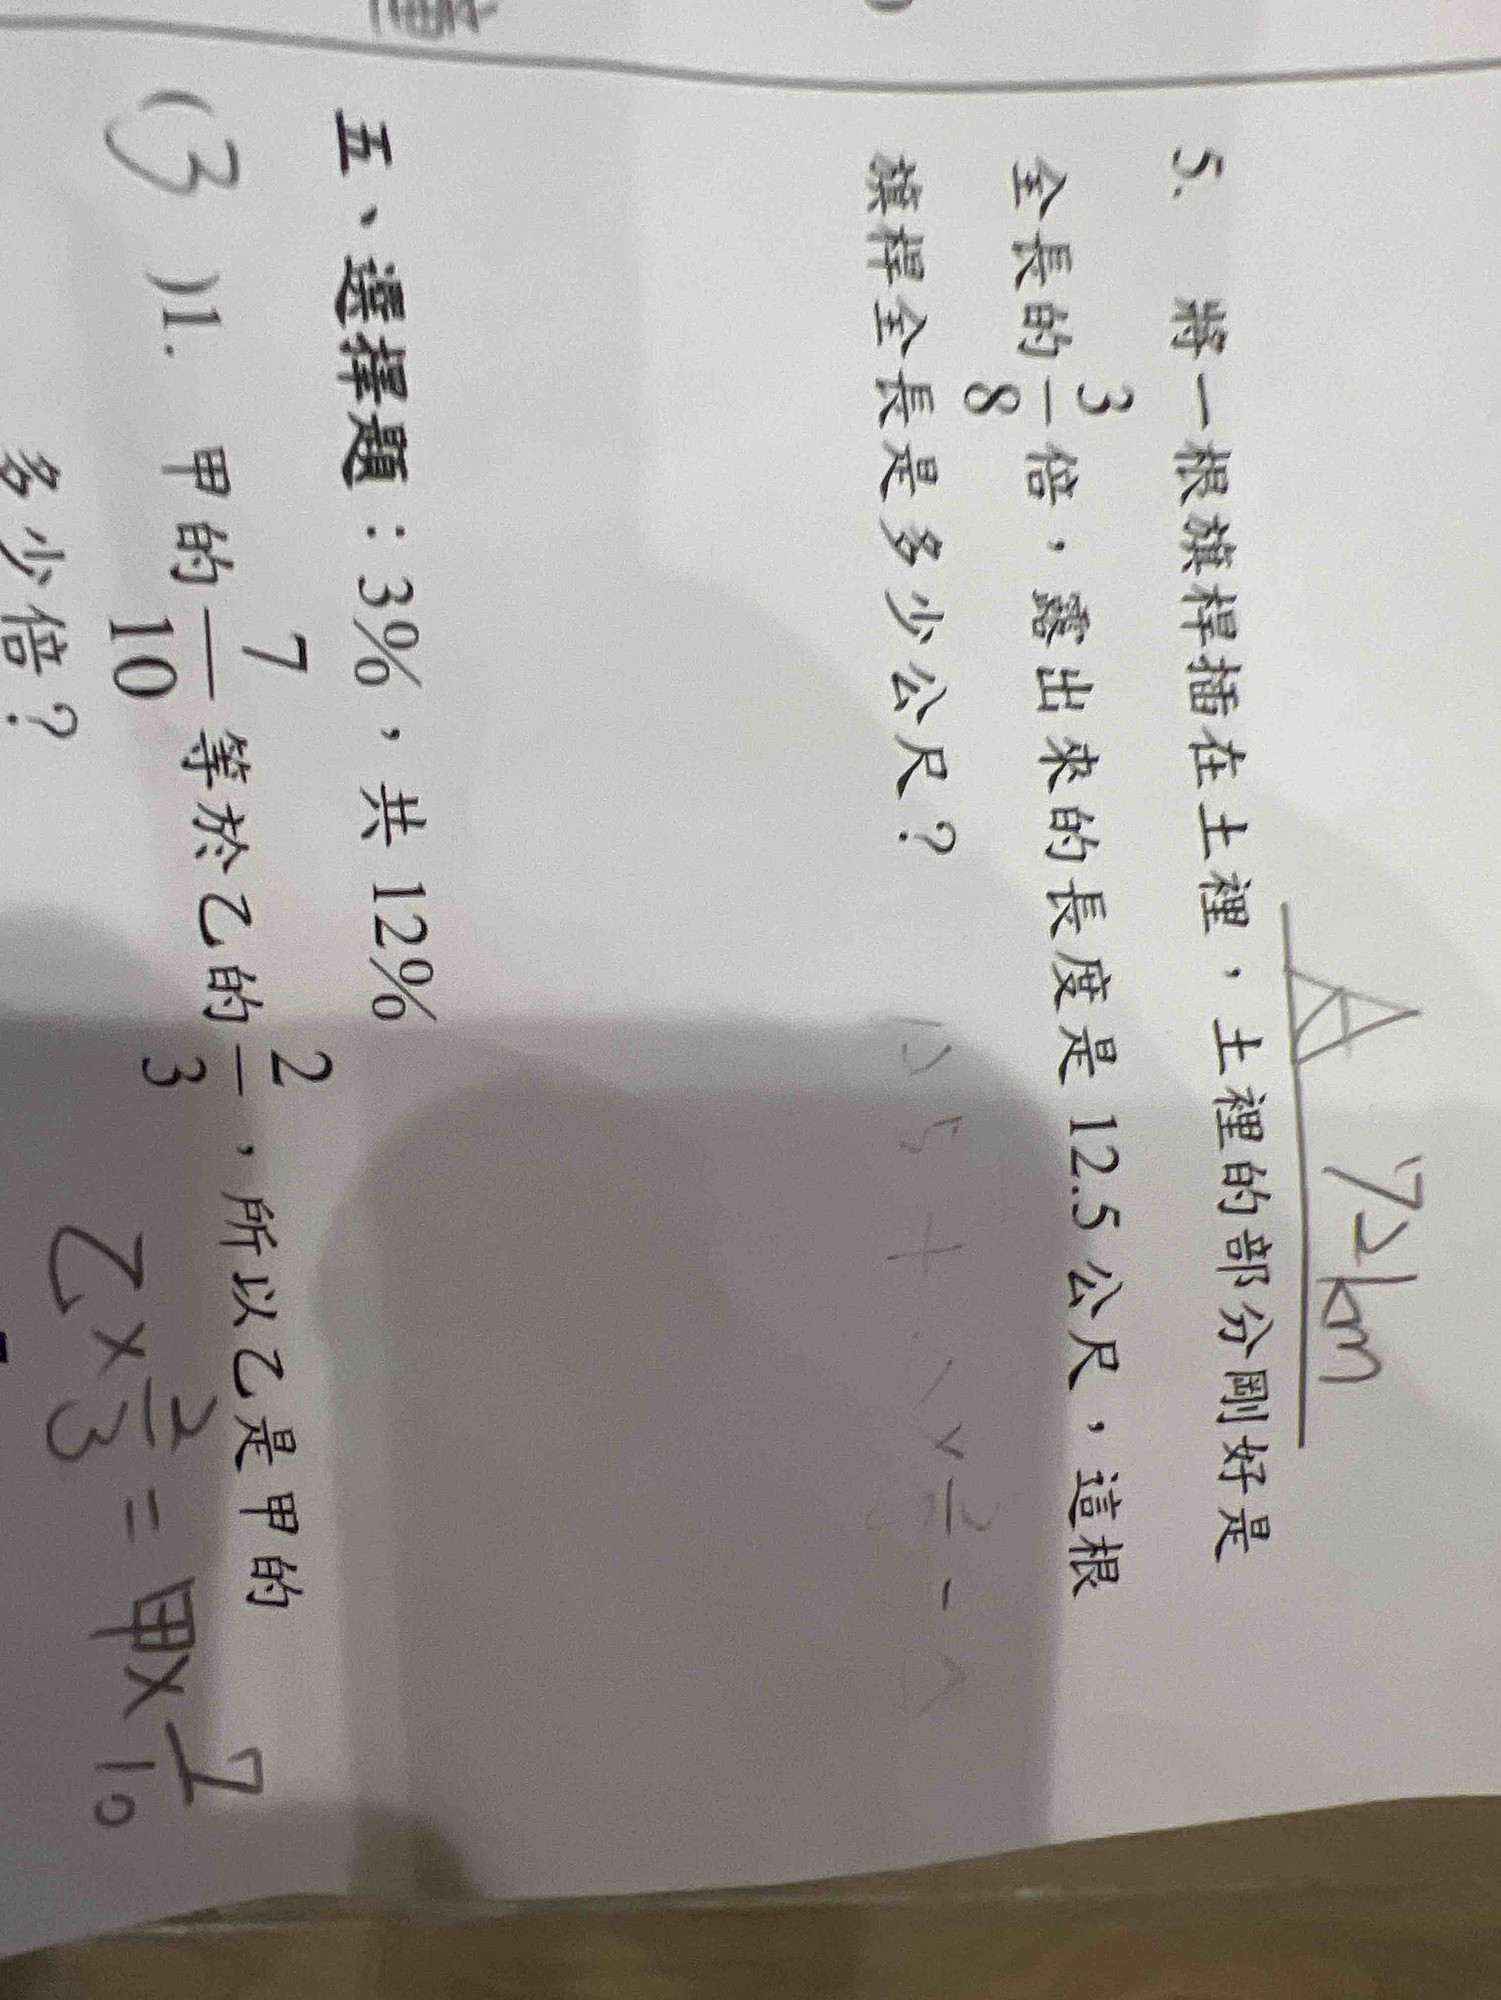 A 72km
5. 將一根旗桿插在土裡，土裡的部分剛好是
全長的3/8倍，露出來的長度是 12.5 公尺，這根
旗桿全長是多少公尺？
五、選擇題：3%，共 12%
(3)1. 甲的7/10等於乙的2/3，所以乙是甲的
多少倍？
乙×2/3=甲×7/10